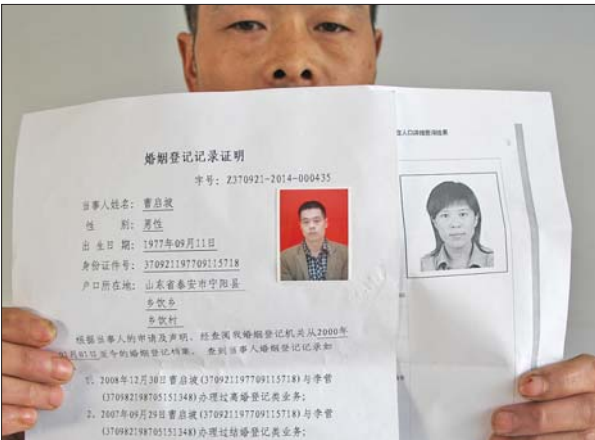 婚姻登记记录证明
字号: Z370921-2014-000435
当事人姓名: 曹启坡
性 别: 男性
出 生 日 期: 1977年09月11日
身份证件号: 370921197709115718
户口所在地: 山东省泰安市宁阳县
乡饮乡
乡饮村
根据当事人的申请及声明, 经查阅我婚姻登记机关从2000年
01月01日至今的婚姻登记档案, 查到当事人婚姻登记记录如
1、2008年12月30日曹启坡(370921197709115718)与李营
(370982198705151348)办理过离婚登记类业务;
2、2007年09月29日曹启坡(370921197709115718)与李营
(370982198705151348)办理过结婚登记类业务;
人口详细查询结果